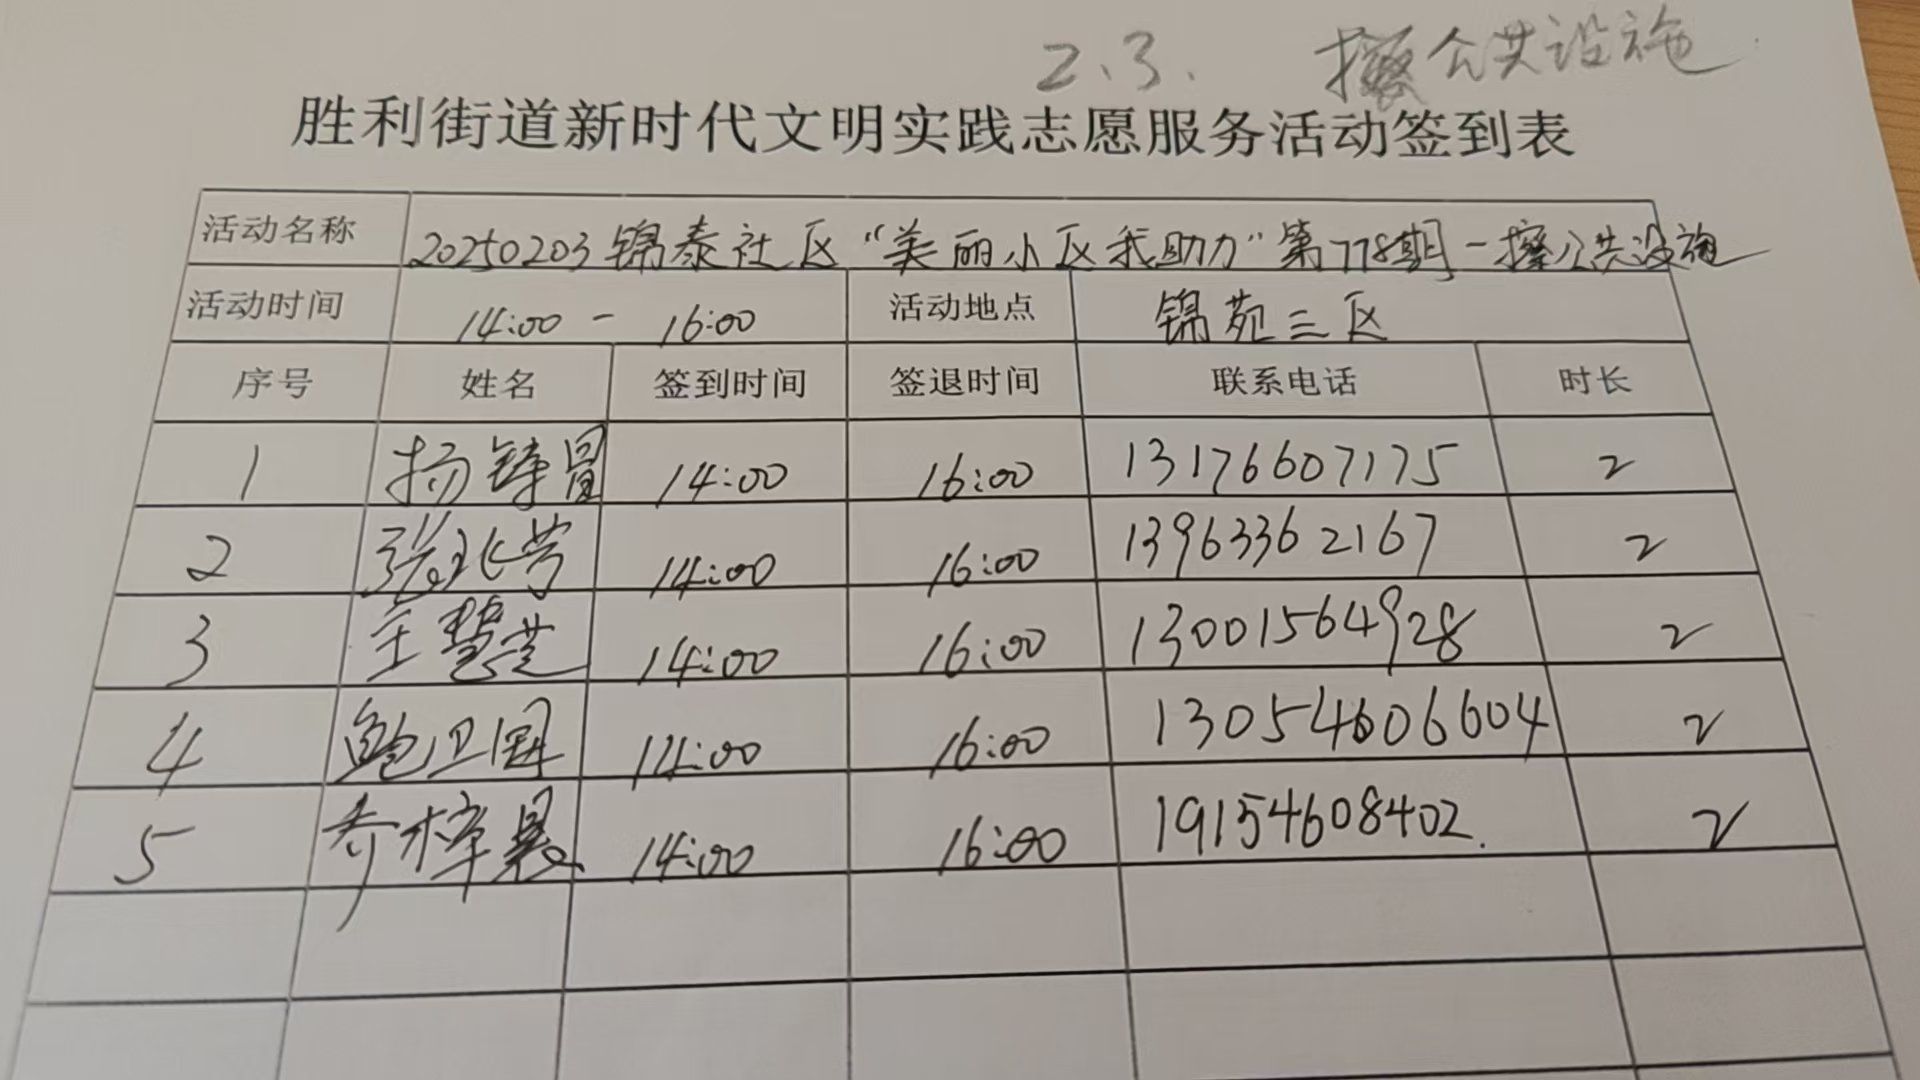 2.3. 擦公共设施
胜利街道新时代文明实践志愿服务活动签到表
活动名称 20250203锦泰社区“美丽小区我助力”第778期-擦公共设施
活动时间 14:00 - 16:00 活动地点 锦苑三区
序号 姓名 签到时间 签退时间 联系电话 时长
1 杨铸 14:00 16:00 13176607175 2
2 张兆芳 14:00 16:00 13963362167 2
3 王慧芝 14:00 16:00 13001564928 2
4 鲍卫国 14:00 16:00 13054606604 2
5 乔梓晨 14:00 16:00 19154608402.  2